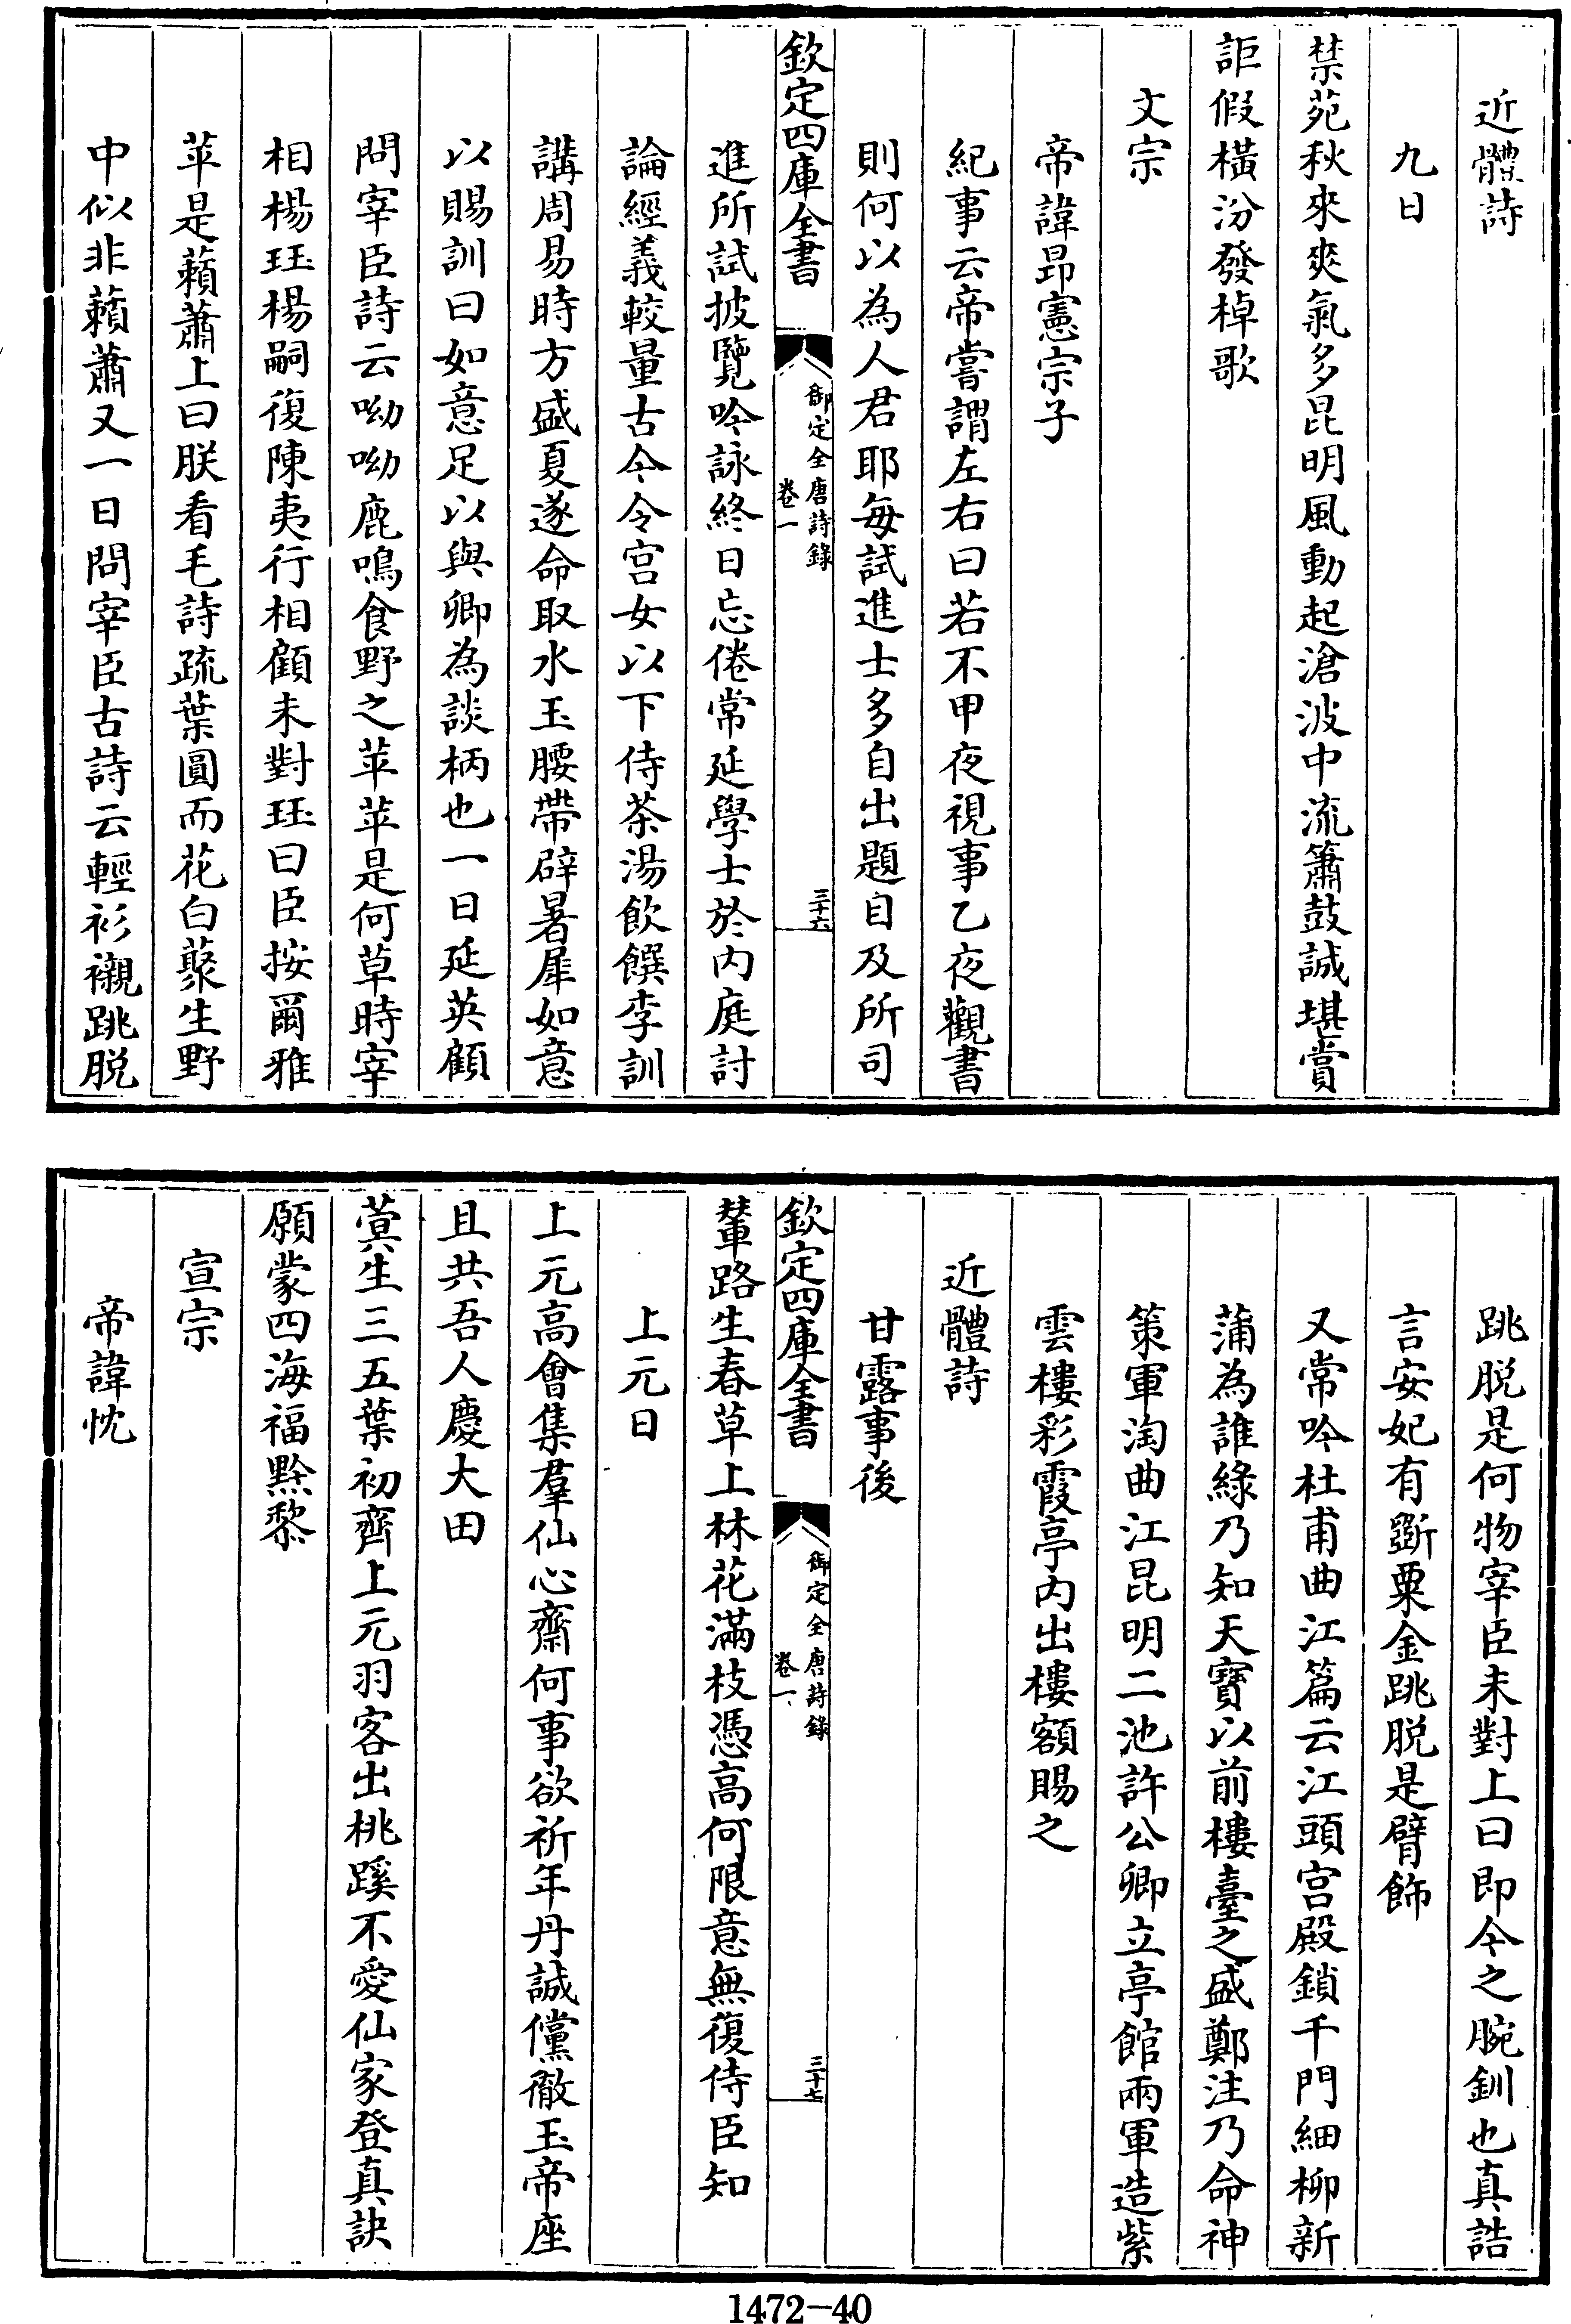 近體詩
九日
禁苑秋來爽氣多昆明風動起滄波中流簫鼓誠堪賞
詎假橫汾發棹歌
文宗
帝諱昻憲宗子
紀事云帝嘗謂左右曰若不甲夜視事乙夜觀書
則何以為人君耶每試進士多自出題目及所司
欽定四庫全書
御定全唐詩錄
卷一
三十六
進所試披覽吟詠終日忘倦常延學士於内庭討
論經義較量古今令宫女以下侍茶湯飲饌李訓
講周易時方盛夏遂命取水玉腰帶辟暑犀如意
以賜訓曰如意足以與卿為談柄也一日延英顧
問宰臣詩云呦呦鹿鳴食野之苹苹是何草時宰
相楊珏楊嗣復陳夷行相顧未對珏曰臣按爾雅
苹是藾蕭上曰朕看毛詩疏葉圓而花白藂生野
中似非藾蕭又一日問宰臣古詩云輕衫襯跳脱
跳脱是何物宰臣未對上曰即今之腕釧也真誥
言安妃有斵粟金跳脱是臂飾
又常吟杜甫曲江篇云江頭宫殿鎖千門細柳新
蒲為誰綠乃知天寶以前樓臺之盛鄭注乃命神
策軍淘曲江昆明二池許公卿立亭館兩軍造紫
雲樓彩霞亭内出樓額賜之
近體詩
甘露事後
欽定四庫全書
御定全唐詩錄
卷一
三十七
輦路生春草上林花滿枝憑高何限意無復侍臣知
上元日
上元高會集羣仙心齋何事欲祈年丹誠儻徹玉帝座
且共吾人慶大田
蓂生三五葉初齊上元羽客出桃蹊不愛仙家登真訣
願蒙四海福黔黎
宣宗
帝諱忱
1472-40